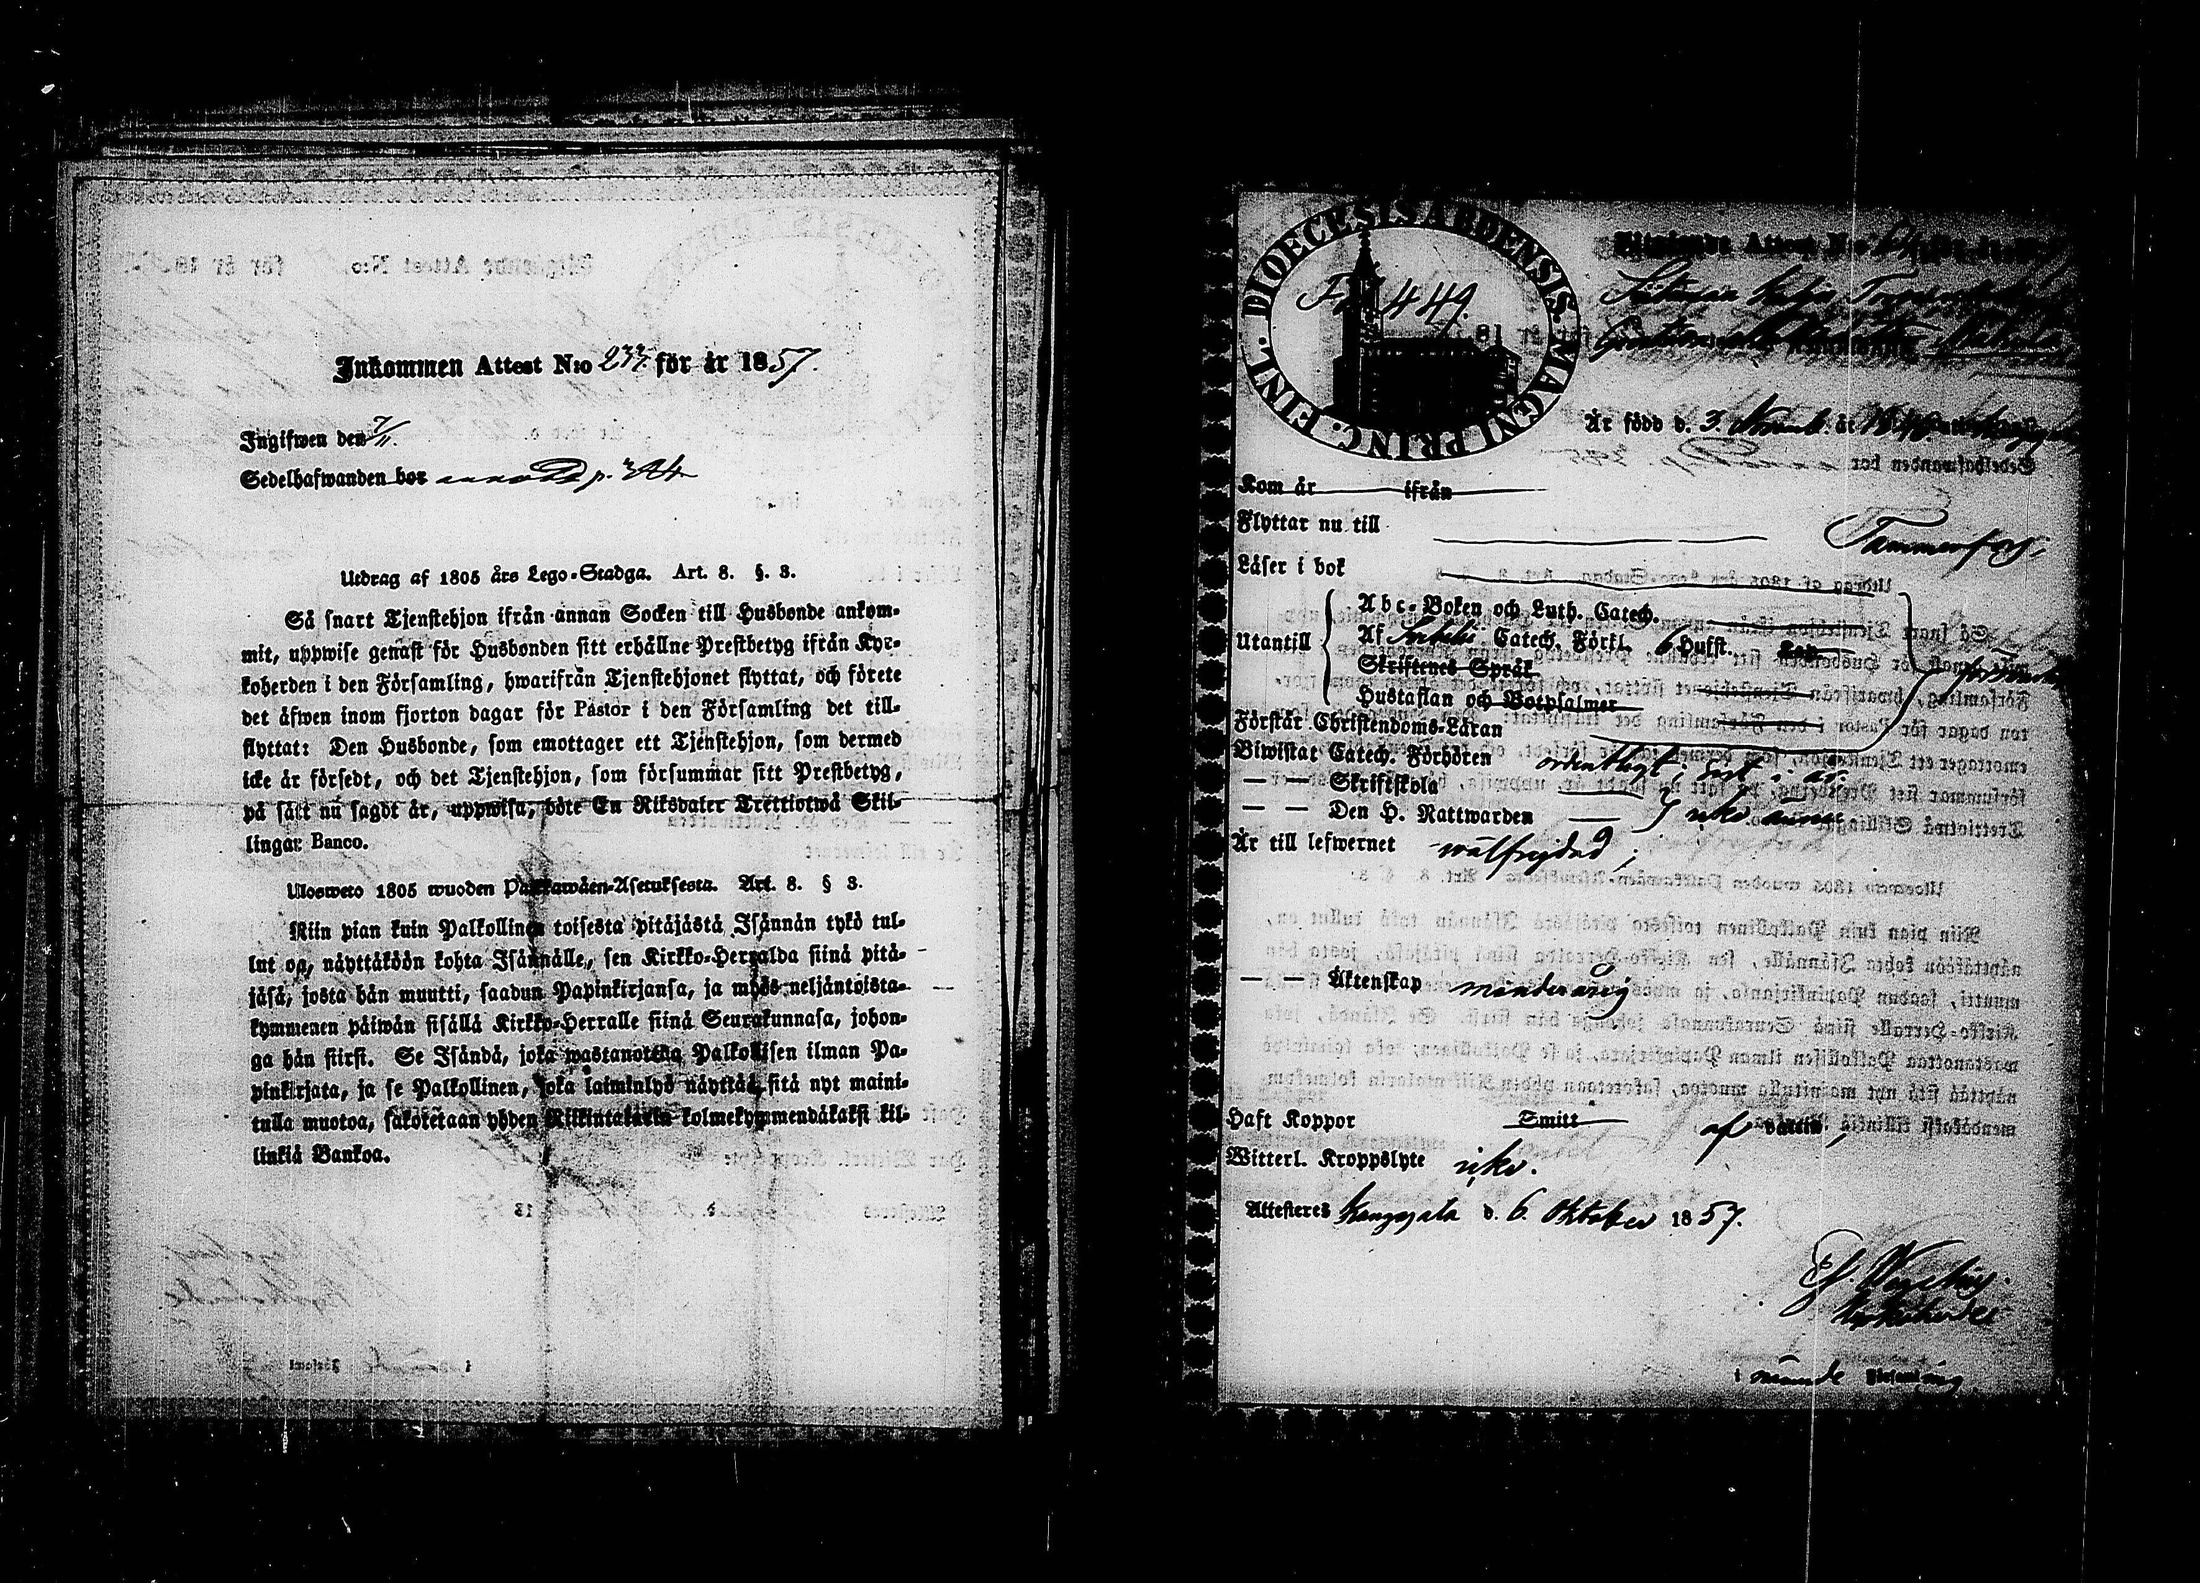 Inkommen Attest N:o 233 för år 1857.
Ingifwen den 7/11.
Sedelhafwanden bor
Utdrag af 1805 års Lego-Stadga. Art. 8. §. 3.
Så snart Tjenstehjon ifrån annan Socken till Husbonde ankom-
mit, uppwise genast för Husbonden sitt erhållne Prestbetyg ifrån Kyr-
koherden i den Församling, hwarifrån Tjenstehjonet flyttat, och förete
det äfwen inom fjorton dagar för Pastor i den Församling det till-
flyttat: Den Husbonde, som emottager ett Tjenstehjon, som dermed
icke är försedt, och det Tjenstehjon, som försummar sitt Prestbetyg,
på sätt nu sagdt är, uppwisa, böte En Riksdaler Trettiotwå Skil-
lingar Banco.
Ulosweto 1805 wuoden Palkkawäen-Asetuksesta. Art. 8. § 3.
Niin pian kuin Palkollinen toisesta pitäjästä Isännän tykö tul-
lut on, näyttäköön kohta Isännälle, sen Kirkko-Herralda siinä pitä-
jäsä, josta hän muutti, saadun Papinkirjansa, ja myös neljäntoista-
kymmenen päiwän sisällä Kirkko-Herralle siinä Seurakunnasa, johon-
ga hän siirsi. Se Isändä, joka wastanottaa Palkollisen ilman Pa-
pinkirjata, ja se Palkollinen, joka laiminlyö näyttää sitä nyt maini-
tulla muotoa, sakotetaan yhden Riikintalarin kolmekymmendäkaksi kil-
linkiä Bankoa.
DIOECESIS ABOENSIS. MAGNI PRINC. FINL.
449.
Utgifwande Attest N:o
Är född d. 3 år
Kom år ifrån
Flyttar nu till Tammerfors,
Läser i bok
Utantill
Abc-Boken och Luth. Catech.
Af Catech. Förkl. 6 Hufst.
Skriftenes Språk
Hustaflan och Botpsalmer
Förstår Christendoms-Läran
Biwistat Catech. Förhören ordentligt i år
— — Skriftskola
— — Den H. Nattwarden icke ännu
Är till lefwernet wälfrejdad;
— — Äktenskap minderårig
Haft Koppor Smitt af
Witterl. Kroppslyte icke.
Attesteres Kangasala d. 6. Oktober 1857.
Kyrkoherde
i nämnde Församling